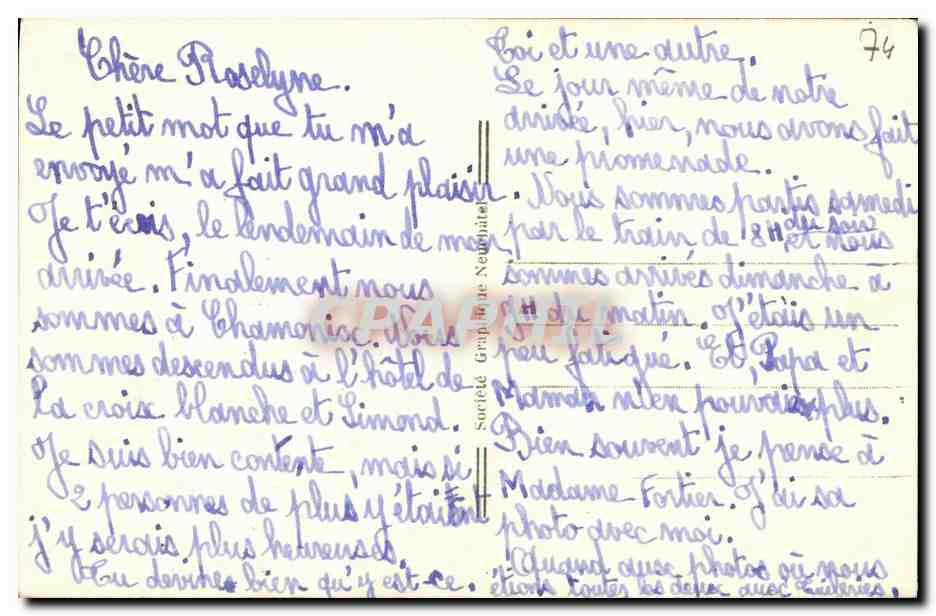 Chère Roselyne.
Le petit mot que tu m'a
envoyé m'a fait grand plaisir.
Je t'écris, le lendemain de mon
arrivée. Finalement nous
sommes à Chamonix. Nous
sommes descendus à l'hôtel de
La croix blanche et Simond.
Je suis bien contente, mais si
2 personnes de plus y étaient
j'y serais plus heureuses.
Tu devine bien qu'y est-ce.
Société Graphique Neuchâtel
CPAPHIL
74
Toi et une autre.
Le jour même de notre
arrivée, hier, nous avons fait
une promenade.
Nous sommes partis samedi
du soir
par le train de 8H et nous
sommes arrivés dimanche à
H du matin. J'étais un
peu fatigué. Et, Papa et
Maman n'en pouvais plus.
Bien souvent je pense à
Madame Fortier. J'ai sa
photo avec moi.
Quand aux photos où nous
étions toutes les deux aux Tuileries,